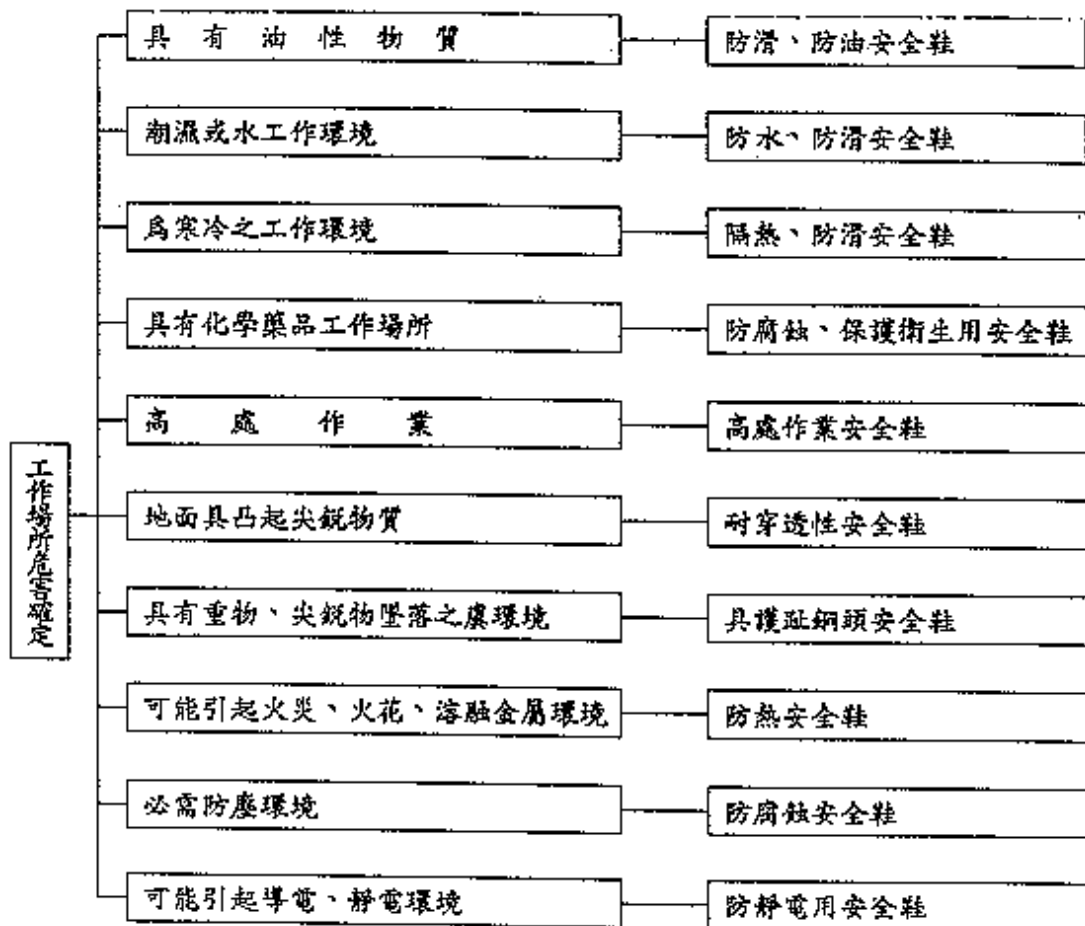 具有油性物質
防滑、防油安全鞋
潮濕或水工作環境
防水、防滑安全鞋
為寒冷之工作環境
隔熱、防滑安全鞋
具有化學藥品工作場所
防腐蝕、保護衛生用安全鞋
高處作業
高處作業安全鞋
工作場所危害確定
地面具凸起尖銳物質
耐穿透性安全鞋
具有重物、尖銳物墜落之虞環境
具護趾鋼頭安全鞋
可能引起火災、火花、溶融金屬環境
防熱安全鞋
必需防塵環境
防腐蝕安全鞋
可能引起導電、靜電環境
防靜電用安全鞋